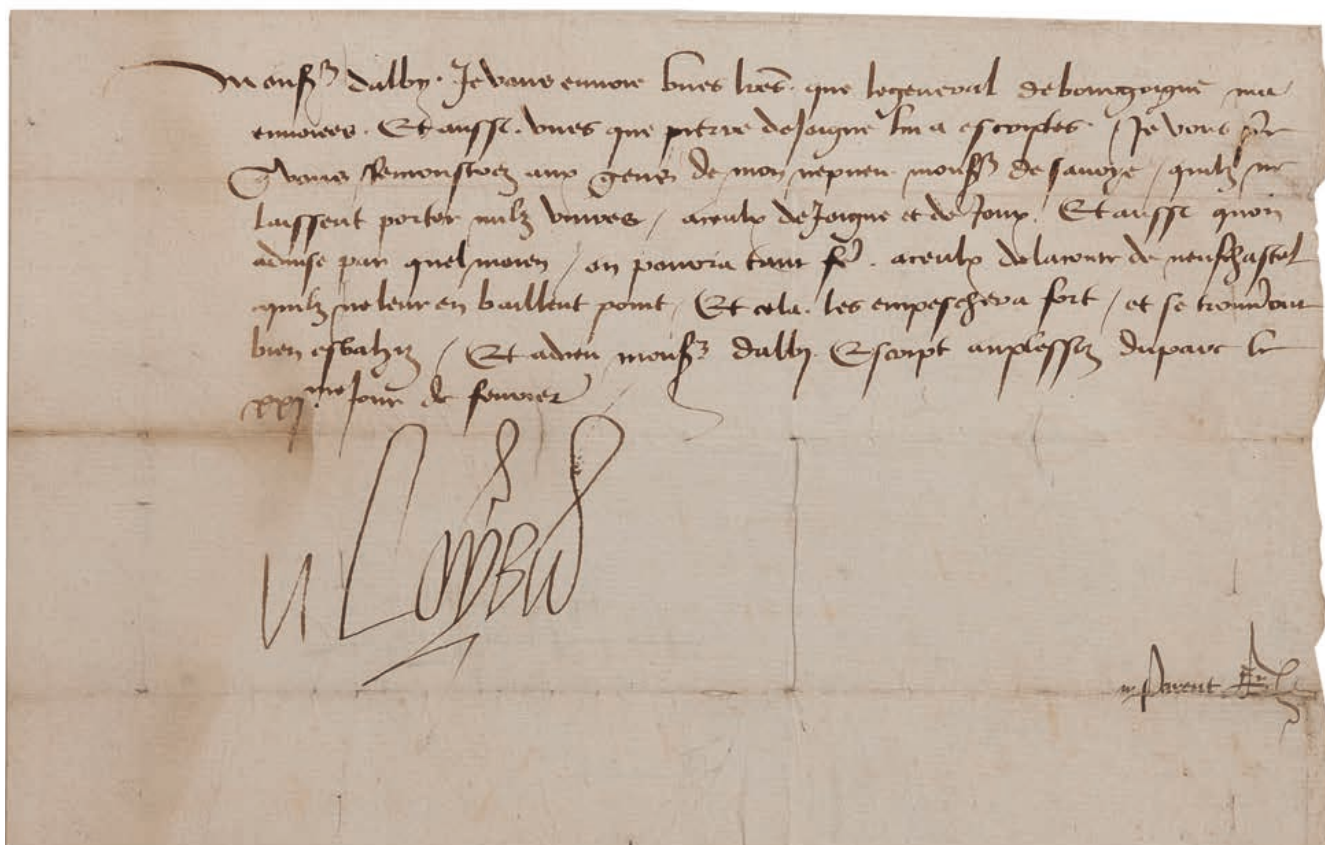 Monsr dalby. Je vous envoie unes lres. que le general de bourgoigne ma
envoiees. Et aussi. unes que pierre de Joigne luy a escriptes. / Je vous pr
q vous remonstrez aux gens de mon nepveu monsr de savoye / quilz ne
laissent porter nulz vivres / a ceulx de Joigne et de Joux. Et aussi quon
advise par quel moien / on pourra tant fe. a ceulx de la conte de neufchastel
quilz ne leur en baillent point / Et cela. les empeschera fort / et se trouveront
bien esbahiz / Et adieu monsr dalby. Escript au plessiz du parc le
xxjme Jour de fevrier
Loys
Parent